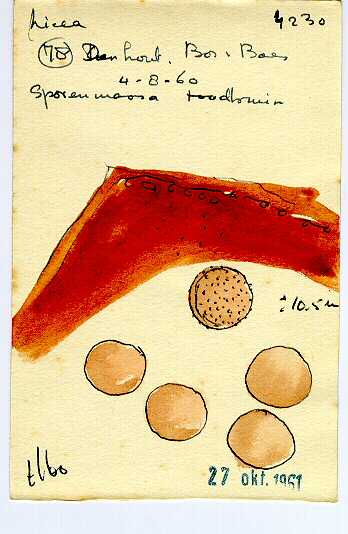 Licea 4230
78 Den hout. Bos. Baes
4-8-60
Sporenmassa roodbruin
: 10.5 u
t/60
27 okt. 1961